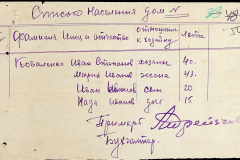 Список населения дом №
Фамилия Имя и отчество отношение к хозяину Лета
Коваленко Иван Степанов хозяин 40.
Мария Иванов жена 43.
Иван Иванов сын 20
Иванов 15
Бухгалтер.